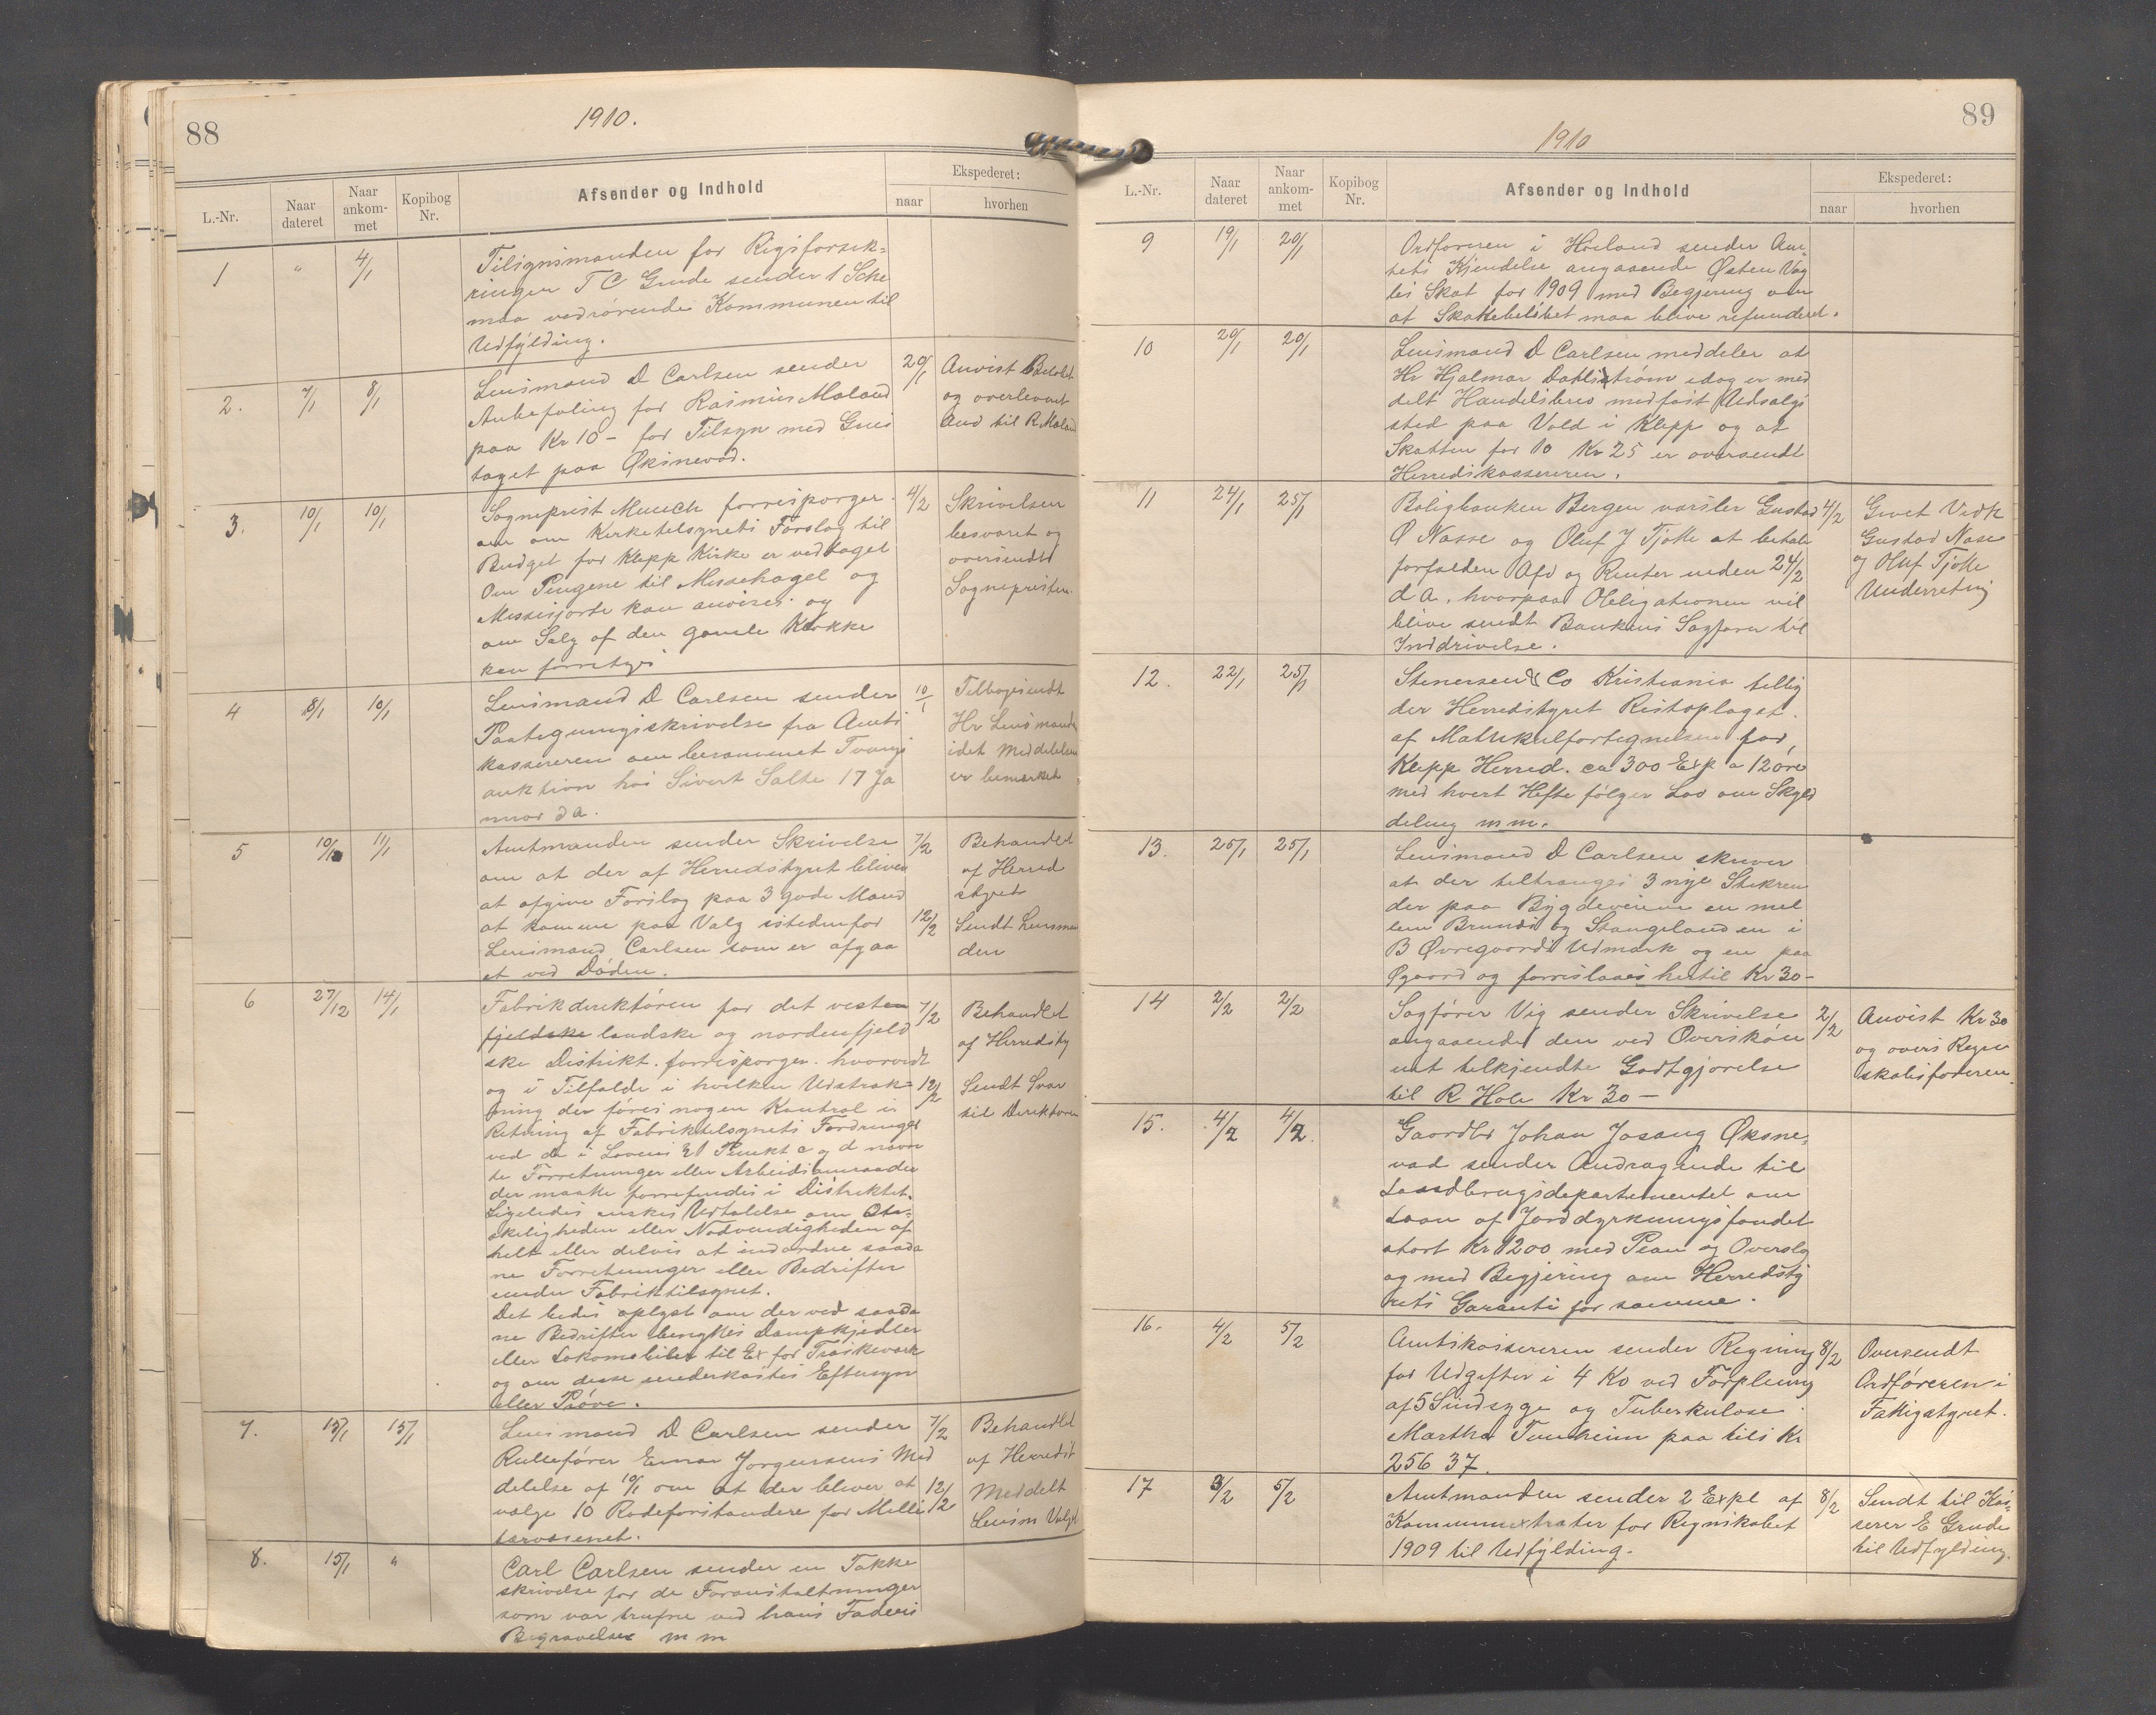 88
1910.
L.-Nr.
Naar dateret
Naar ankommet
Kopibog Nr.
Afsender og Indhold
Ekspederet:
naar
hvorhen
1 " 4/1
Tilsignsmanden for Rigsforsik-
ringen T C Grude sender 1 Sche
maa vedrörende Kommunen til
Udfÿlding.
2. 7/1 8/1
Lensmand D Carlsen sender
Anbefaling for Rasmus Maland
paa Kr 10 – for Tilsyn med Grus
taget paa Øksnevad.
20/1
Anvist Beløbet
og overlevert
Anv til R Maland
3. 10/1 10/1
Sogneprest Munch forrespørger
om om Kirketilsynets Forslag til
Budget for Klepp Kirke er vedtaget
Om Pengene til Messehagel og
Messesjorte kan anvises og
om Salg af den gamle Klokke
kan forretages
4/2
Skrivelsen
besvaret og
oversendt
Sognepresten
4 8/1 10/1
Lensmand D Carlsen sender
Paategningsskrivelse fra Amts
kassereren om berammet Tvangs
auktion hos Sivert Salte 17 Ja
nuar d a.
10/1
Tilbagesendt
Hr Lensmanden
idet Meddelelsen
er bemerket
5 10/1 11/1
Amtmanden sender Skrivelse
om at der af Herredstyret bliver
at afgive Forslag paa 3 gode Mænd
at komme paa Valg istedenfor
Lensmand Carlsen som er afgaa
et ved Döden.
7/2
Behandlet
af Herred
styret
12/2
Sendt Lensman
den
6 27/12 14/1
Fabrikdirektören for det vesten
fjeldske landske og nordenfjeld
ske Distrikt forrespørger hvorvidt
og i Tilfælde i hvilken Udstræk-
ning der föres nogen Kontrol i
Retning af Fabriktilsynets Fordringer
ved de i Lovens § 1 Punkt c og d nævn
te Forretninger eller Arbeidsomraader
der maatte forrefindes i Distriktet.
Ligeledes ønskes Udtalelse om Øn-
skeligheden eller Nødvendigheden af
helt eller delvis at indordne saada
ne Forretninger eller Bedrifter
under Fabriktilsynet.
Det bedes oplyst om der ved saada
ne Bedrifter benyttes Dampkjedler
eller Lokomobiler til Ex for Træskeværk
og om disse underkastes Eftersyn
eller Pröve.
7/2
Behandlet
af Herredsty
12/2
Sendt Svar
til Direktøren
7. 15/1 15/1
Lensmand D Carlsen sender
Rullefører Einar Jørgensens Med
delelse af 10/1 om at der bliver at
vælge 10 Rodeforstandere for Mili
tærvæsenet.
7/2
Behandlet
af Herredst
12/2
Meddelt
Lensm Valget
8. 15/1 "
Carl Carlsen sender en Takke
skrivelse for de Foranstaltninger
som var trufne ved hans Faders
Begravelse m m
89
1910
L.-Nr.
Naar dateret
Naar ankommet
Kopibog Nr.
Afsender og Indhold
Ekspederet:
naar
hvorhen
9 19/1 20/1
Ordføreren i Høiland sender Am-
tets Kjendelse angaaende Østen Vag
les Skat for 1909 med Begjæring om
at Skattebeløbet maa blive refunderet.
10 20/1 20/1
Lensmand D Carlsen meddeler at
Hr Hjalmar Dahlström idag er med
delt Handelsbrev med fast Udsalgs
sted paa Vold i Klepp og at
Skatten for 10 Kr 25 er oversendt
Herredskassereren.
11 24/1 25/1
Boligbanken Bergen varsler Gustad
Ø Nasse og Oluf J Tjøtte at betale
forfalden Afd og Renter inden 24/2
d a, hvorpaa Obligationen vil
blive sendt Bankens Sagfører til
Inddrivelse.
4/2
Givet Vedk
Gustad Nase
og Oluf Tjøtte
Underretning
12. 22/1 25/1
Stenersen & Co Kristiania tillig
der Herredstyret Restoplaget
af Matrikulfortegnelsen for
Klepp Herred. ca 300 Exp a 12 öre
med hvert Hefte følger Lov om Skyld
deling m m.
13. 25/1 25/1
Lensmand D Carlsen skriver
at der tiltrænges 3 nye Stikren
der paa Bygdeveiene en mel
lem Brunds og Stangeland en i
B Øvregaards Udmark og en paa
Øgaard og forreslaaes hertil Kr 30–
14 2/2 2/2
Sagfører Vig sender Skrivelse
angaaende den ved Overskön
net tilkjendte Godtgjörelse
til R Hole Kr 30 –
2/2
Anvist Kr 30
og overs Regn
skabsføreren
15. 4/2 4/2
Gaardbr Johan Josang Øksne-
vad sender Andragende til
Landbrugsdepartementet om
Laan af Jorddyrkningsfondet
stort Kr 1200 med Plan og Overslg
og med Begjering om Herredsty
rets Garanti for samme.
16. 4/2 5/2
Amtskassereren sender Regning
for Udgifter i 4 Kv ved Forpleining
af 5 Sindsyge og Tuberkulose
Martha Tunheim paa tils Kr
256 37.
8/2
Oversendt
Ordføreren i
Fattigstyret.
17 3/2 5/2
Amtmanden sender 2 Expl af
Kommunextrakter for Regnskabet
1909 til Udfÿlding.
8/2
Sendt til Kas-
serer E Grude
til Udfylding.